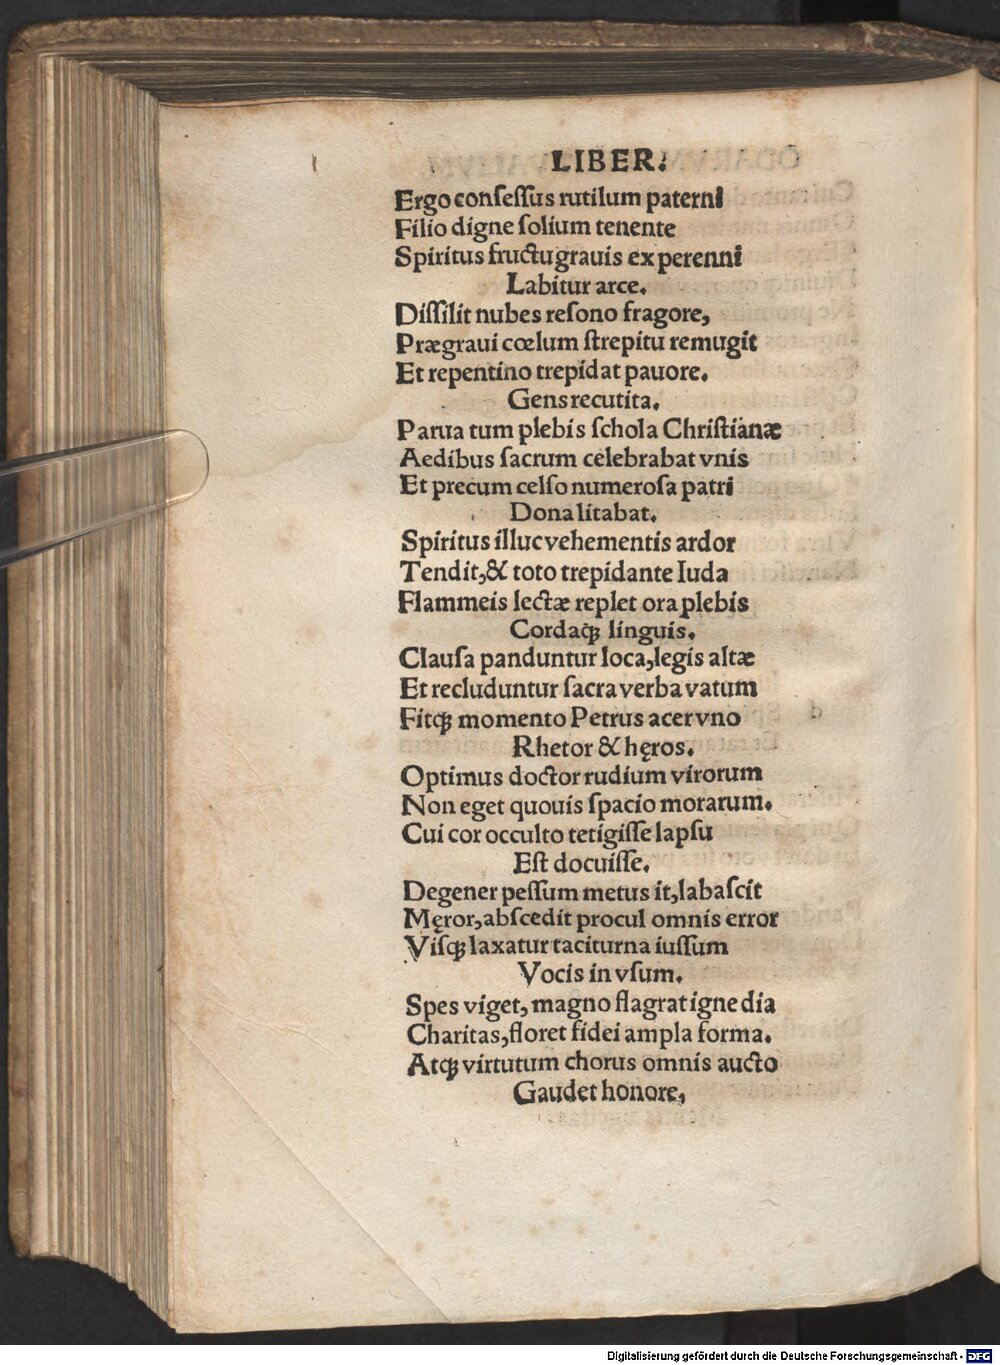 LIBER.
Ergo conſeſſus rutilum paterni
Filio digne ſolium tenente
Spiritus fructu grauis ex perenni
Labitur arce.
Diſſilit nubes reſono fragore,
Prægraui cœlum ſtrepitu remugit
Et repentino trepidat pauore.
Gens recutita.
Parua tum plebis ſchola Chriſtianæ
Aedibus ſacrum celebrabat vnis
Et precum celſo numeroſa patri
Dona litabat.
Spiritus illuc vehementis ardor
Tendit, & toto trepidante Iuda
Flammeis lectæ replet ora plebis
Cordaq̃ linguis.
Clauſa panduntur loca, legis altæ
Et recluduntur ſacra verba vatum
Fitq̃ momento Petrus acer vno
Rhetor & hęros.
Optimus doctor rudium virorum
Non eget quouis ſpacio morarum.
Cui cor occulto tetigiſſe lapſu
Eſt docuiſſe.
Degener peſſum metus it, labaſcit
Męror, abſcedit procul omnis error
Viſq̃ laxatur taciturna iuſſum
Vocis in vſum.
Spes viget, magno flagrat igne dia
Charitas, floret fidei ampla forma.
Atq̃ virtutum chorus omnis aucto
Gaudet honore,
Digitalisierung gefördert durch die Deutsche Forschungsgemeinschaft - DFG